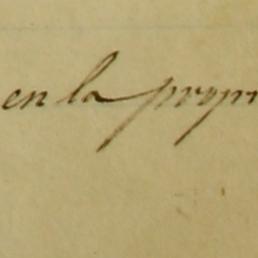 en la propr